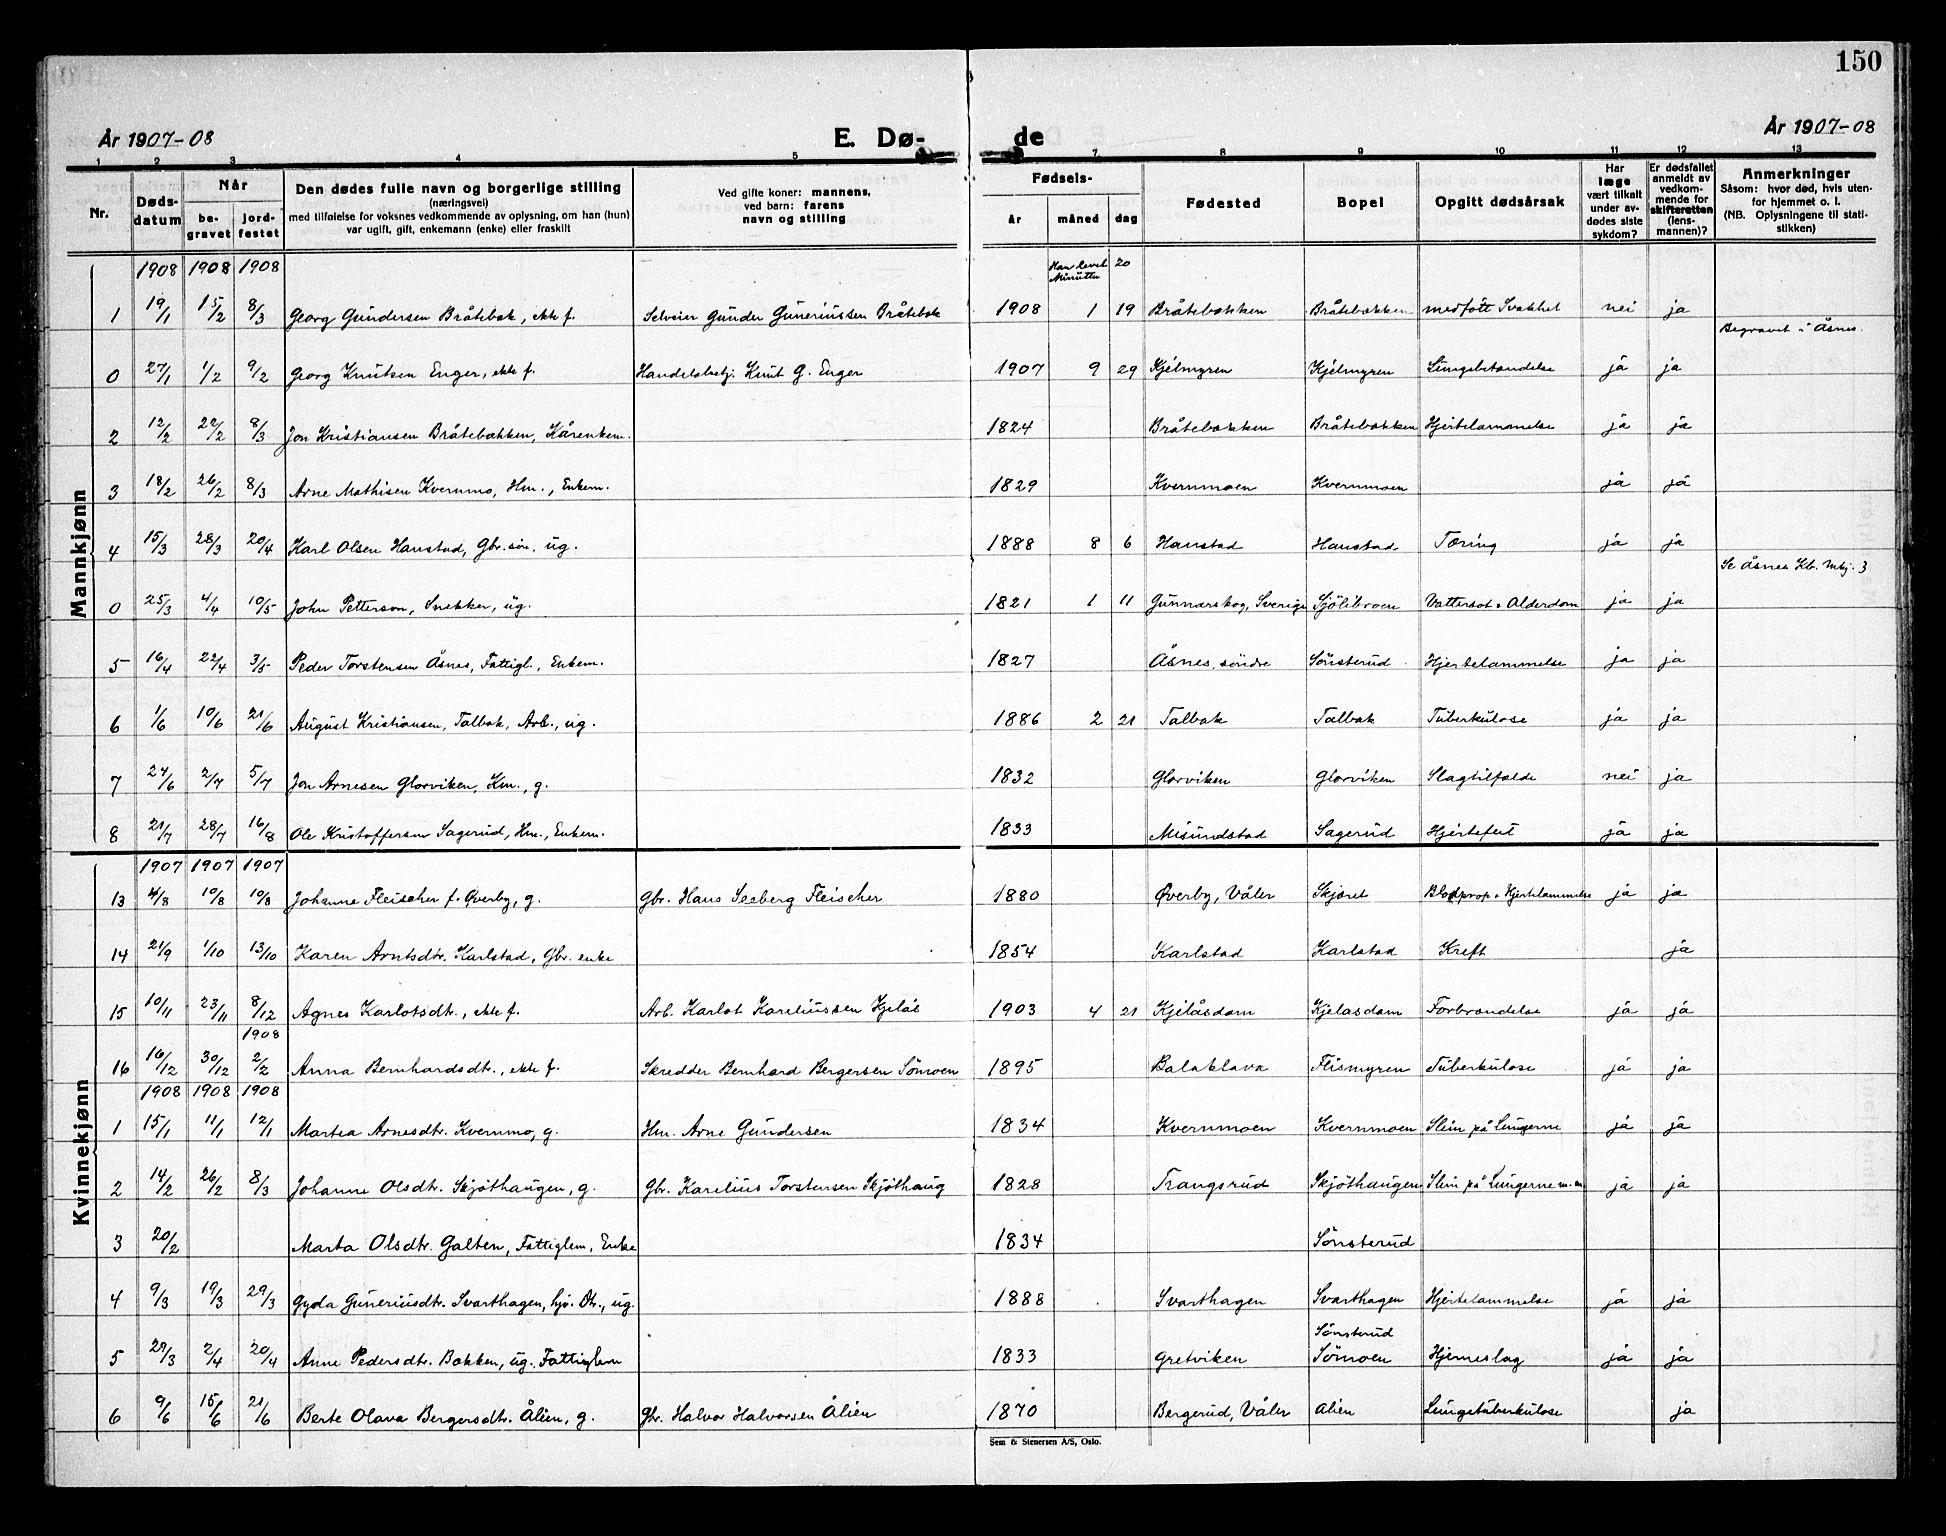 150
År 1907-08 E. Dø- de År 1907-08
1 2 3 4 5 7 8 9 10 11 12 13
Nr. Døds-datum Når be-gravet jord-festet Den dødes fulle navn og borgerlige stilling (næringsvei) med tilføielse for voksnes vedkommende av oplysning, om han (hun) var ugift, gift, enkemann (enke) eller fraskilt Ved gifte koner: mannens, ved barn: farens navn og stilling Fødsels- år måned dag Fødested Bopel Opgitt dødsårsak Har læge vært tilkalt under av-dødes siste sykdom? Er dødsfallet anmeldt av vedkom-mende for skifteretten (lens-mannen)? Anmerkninger Såsom: hvor død, hvis uten-for hjemmet o. l. (NB. Oplysningene til stati-stikken)
Mannkjønn
1908 1908 1908 Han levet 20 Minutter
1 19/1 15/2 8/3 Georg Gundersen Bråtebak, ekte f. Selveier Gunder Guneriussen Bråtebak 1908 1 19 Bråtebakken Bråtebakken medfött Svakhet nei ja
Begravet i Åsnes.
0 27/1 1/2 9/2 Georg Knutsen Enger, ekte f. Handelsbetj. Knut G. Enger 1907 9 29 Kjelmyren Kjelmyren Lungebetændelse ja ja
2 12/2 22/2 8/3 Jon Kristiansen Bråtebakken, Kårenkem. 1824 Bråtebakken Bråtebakken Hjertelammelse ja ja
3 18/2 26/2 8/3 Arne Mathisen Kvernmo, Hm., Enkem. 1829 Kvernmoen Kvernmoen ja ja
4 15/3 28/3 20/4 Karl Olsen Hanstad, Gbr. sön, ug. 1888 8 6 Hanstad Hanstad Tæring ja ja
Se Åsnes Kb. mkj. 3
0 25/3 4/4 10/5 John Petterson, Snekker, ug. 1821 1 11 Gunnarskog, Sverige Sjölibroen Vattersot & Alderdom ja ja
5 16/4 22/4 3/5 Peder Torstensen Åsnes, Fattigl., Enkem. 1827 Åsnes, söndre Sönsterud Hjertelammelse ja ja
6 1/6 10/6 21/6 August Kristiansen, Talbak, Arb., ug. 1886 2 21 Talbak Talbak Tuberkulose ja ja
7 24/6 2/7 5/7 Jon Arnesen Glorviken, Km., g. 1832 Glorviken Glorviken Slagtilfælde nei ja
8 21/7 28/7 16/8 Ole Kristoffersen Sagerud, Hm., Enkem. 1833 Misundstad Sagerud Hjertefeil ja ja
Kvinnekjønn
1907 1907 1907
13 4/8 10/8 10/8 Johanne Fleischer f. Øverby, g. Gbr. Hans Seeberg Fleischer 1880 Øverby, Våler Skjæret Blodprop & Hjertelammelse ja ja
14 21/9 1/10 13/10 Karen Arntsdtr. Karlstad, Gbr. enke 1854 Karlstad Karlstad Kreft ja
15 10/11 23/11 8/12 Agnes Karlotsdtr., ekte f. Arb. Karlot Kareliussen Kjelås 1903 4 21 Kjelåsdam Kjelasdam Forbrændelse ja ja
1908
16 16/12 30/12 2/2 Anna Bernhardsdtr., ekte f. Skredder Bernhard Bergersen Sömoen 1895 Balaklava Flismyren Tuberkulose ja ja
1908 1908 1908
1 15/1 11/1 12/1 Martea Arnesdtr. Kvernmo, g. Hm. Arne Gundersen 1834 Kvernmoen Kvernmoen Slim på Lungerne ja ja
2 14/2 26/2 8/3 Johanne Olsdtr. Skjöthaugen, g. Gbr. Karelius Torstensen Skjöthaug 1828 Trangsrud Skjöthaugen Slim på Lungerne m.m ja ja
3 20/2 Marta Olsdtr. Galten, Fattiglem, Enke 1834 Sönsterud
4 9/3 19/3 29/3 Gyda Guneriusdtr. Svarthagen, hjv. Dtr., ug. 1888 Svarthagen Svarthagen Hjertelammelse ja ja
5 29/3 2/4 20/4 Anne Pedersdtr. Bakken, ug. Fattiglem 1833 Gretviken Sönsterud Sömoen Hjerneslag ja ja
6 9/6 15/6 21/6 Berte Olava Bergersdtr. Ålien, g. Gbr. Halvor Halvorsen Ålien 1870 Bergerud, Våler Alien Lungetuberkulose ja
Sem & Stenersen A/S, Oslo.